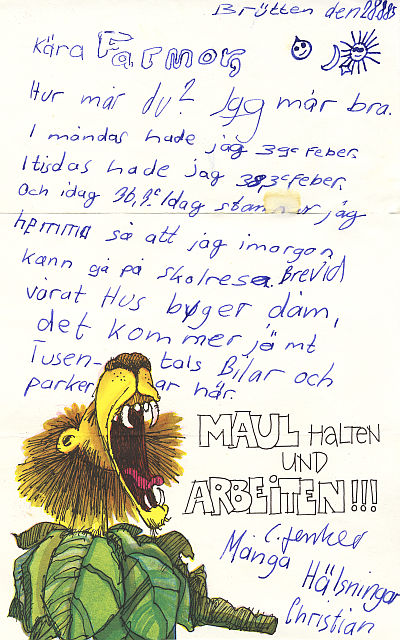 Brütten den 28885
Kära Farmor,
Hur mår du? Jgg mår bra.
I måndas hade jag 39c feber.
I tisdas hade jag 38,3c feber.
Och idag 36,9c Idag stannar jag
hemma så att jag imorgon
kann gå på skolresa. Brevid
vårat Hus byger dåm,
det kommer jämt
Tusen-tals Bilar och
parkerar här.
MAUL HALTEN
UND
ARBEITEN!!!
C. Jenker
Många Hälsningar
Christian